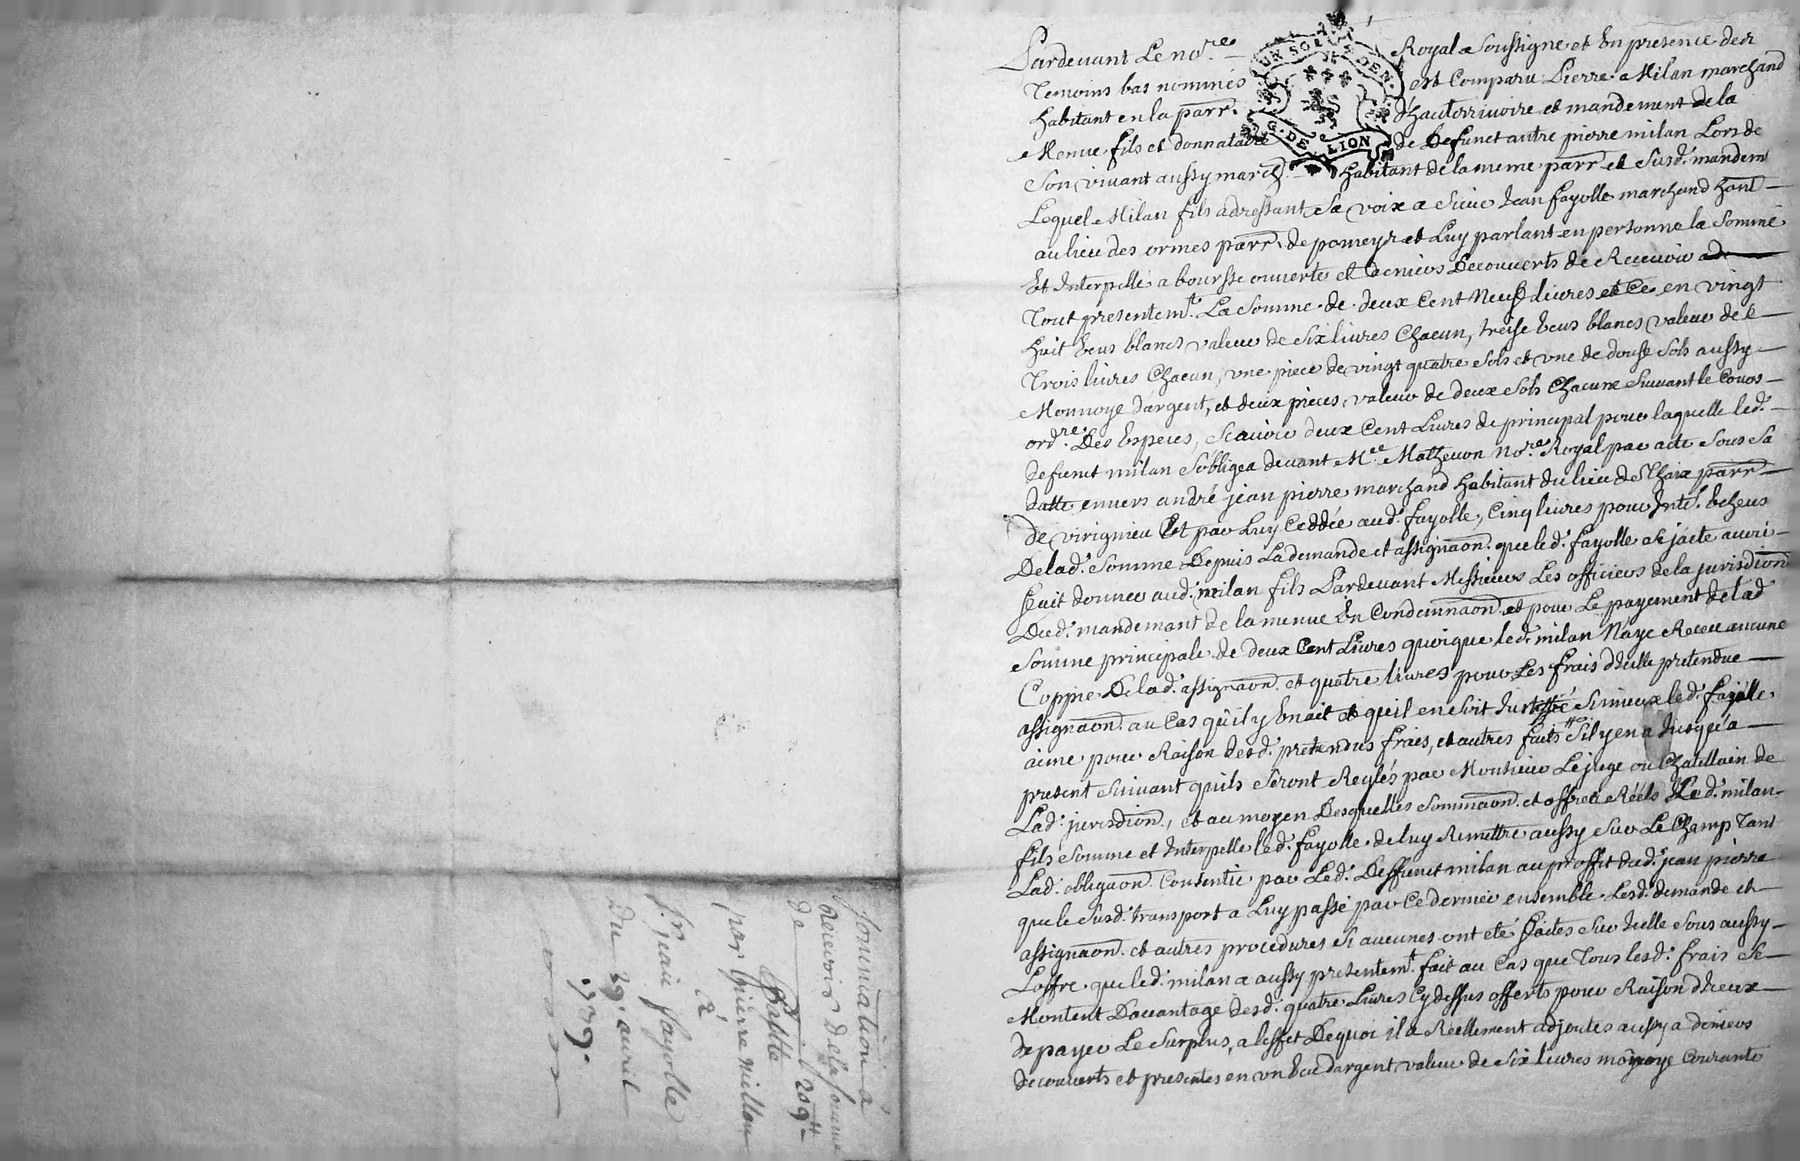 Pardevant Le no.re Royal Soussigne et En presence des
Temoins bas nommés est Comparu Pierre Milan marchand
habitant en la parr. d'hauterrivoire et mandement de la
Menue fils et donnataire de Defunct autre pierre milan Lors de
Son vivant aussy march. habitant de la meme parr et Susd. mandem
Lequel Milan fils adressant Sa voix a Sieur Jean fayolle marchand hant
au lieu des ormes parr. de pomeys et Luy parlant en personne la Sommé
Et Interpellé a boursse ouverte et deniers Decouverts de Recevoir
Tout presentemt. La Somme de deux Cent Neuf livres et Ce en vingt
huit Ecus blancs valeur de Six livres Chacun, treise Ecus blancs valeur de
Trois livres Chacun, une piece de vingt quatre Sols et une de douse Sols aussy
Monnoye dargent, et deux pieces valeur de deux Sols Chacune Suivant le Cours
ord.re Des Especes, Scavoir deux Cent Livres de principal pour laquelle led.
defunct milan Sobligea devant M.e Mathevon No.re Royal par acte Sous Sa
datte envers andré jean pierre marchand habitant du lieu de parr
de virignieu Et par Luy Ceddée aud. fayolle, Cinq livres pour Inte. Echeus
De lad. Somme Depuis La demande et assignaon. que led. fayolle a
fait donner aud. milan fils Pardevant Messieurs Les officiers de la jurisdion
Dud. mandemant de la menue En Condemnaon. et pour Le payement de lad
Somme principale de deux Cent Livres quoique led. milan N'aye Receu aucune
Coppie De lad. assignaon. et quatre livres pour Les frais d'Icelle pretendue
assignaon. au Cas qu'il y En ait et qu'il en Soit Si mieux led. fayolle
aime pour Raison desd. pretendus frais, et autres faits S'il y en a Jusqu'a
present Suivant quils Seront Reglés par Monsieur Le juge ou Chatellain de
Lad. jurisdion, et au moyen Desquelles Sommaon. et offres Réels Led. milan
fils Somme et Interpelle led. fayolle de luy Remettre aussy Sur Le Champ Tant
Lad. obligaon. Consentie par Led. Deffunct milan au proffit dud. jean pierre
que le Susd. transport a Luy passé par Ce dernier ensemble Lesd. demande et
assignaon. et autres procedures Si aucunes ont eté faites Sur Icelle Sous aussy
Loffre que led. milan a aussy presentemt. fait au Cas que Tous lesd. frais Se
Montent Davantage desd. quatre Livres Cy dessus offerts pour Raison d'Iceux
de payer Le Surplus, a leffet Dequoi il a Réellement adjoutés aussy a deniers
decouverts et presentes en un Ecu dargent valeur de Six livres monnoye Courante
Sommation à
Recevoir De la Somme
de 209tt
faitte
par pierre millan
à
Sr. jean fayolle
Du 29e. avril
1739.